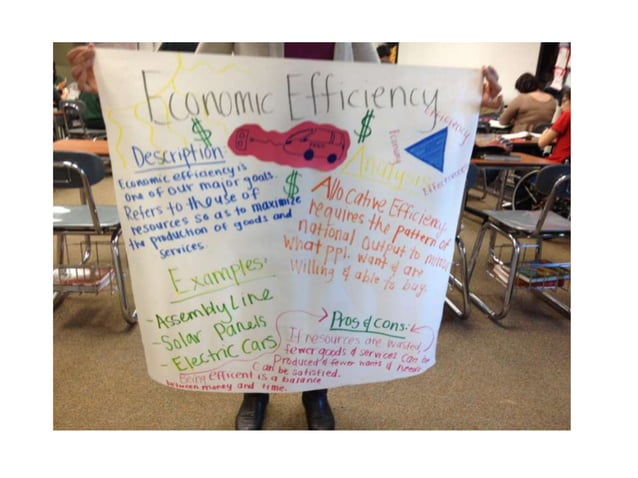 Economic Efficiency
Description:
Economic efficiency is
one of our major goals.
Refers to the use of
resources so as to maximize
the production of goods and
services.
Efficiency
Economy
Effectiveness
Analysis
Allocative Efficiency
requires the pattern of
national output to mirror
what ppl. want & are
willing & able to buy.
Examples:
- Assembly Line
- Solar Panels
- Electric Cars
Pros & cons:
If resources are wasted
fewer goods & services can be
Produced & fewer wants & needs
can be satisfied.
Being efficent is a balance
between money and time.